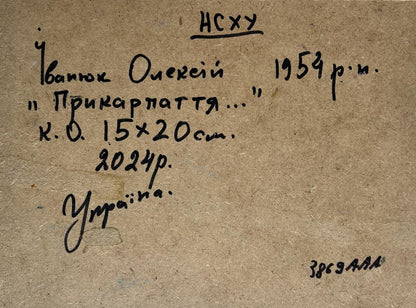 НСХУ
Іванюк Олексій 1954 р.н.
„Прикарпаття..."
к.о. 15×20см.
2024р.
Україна.
3869ААА